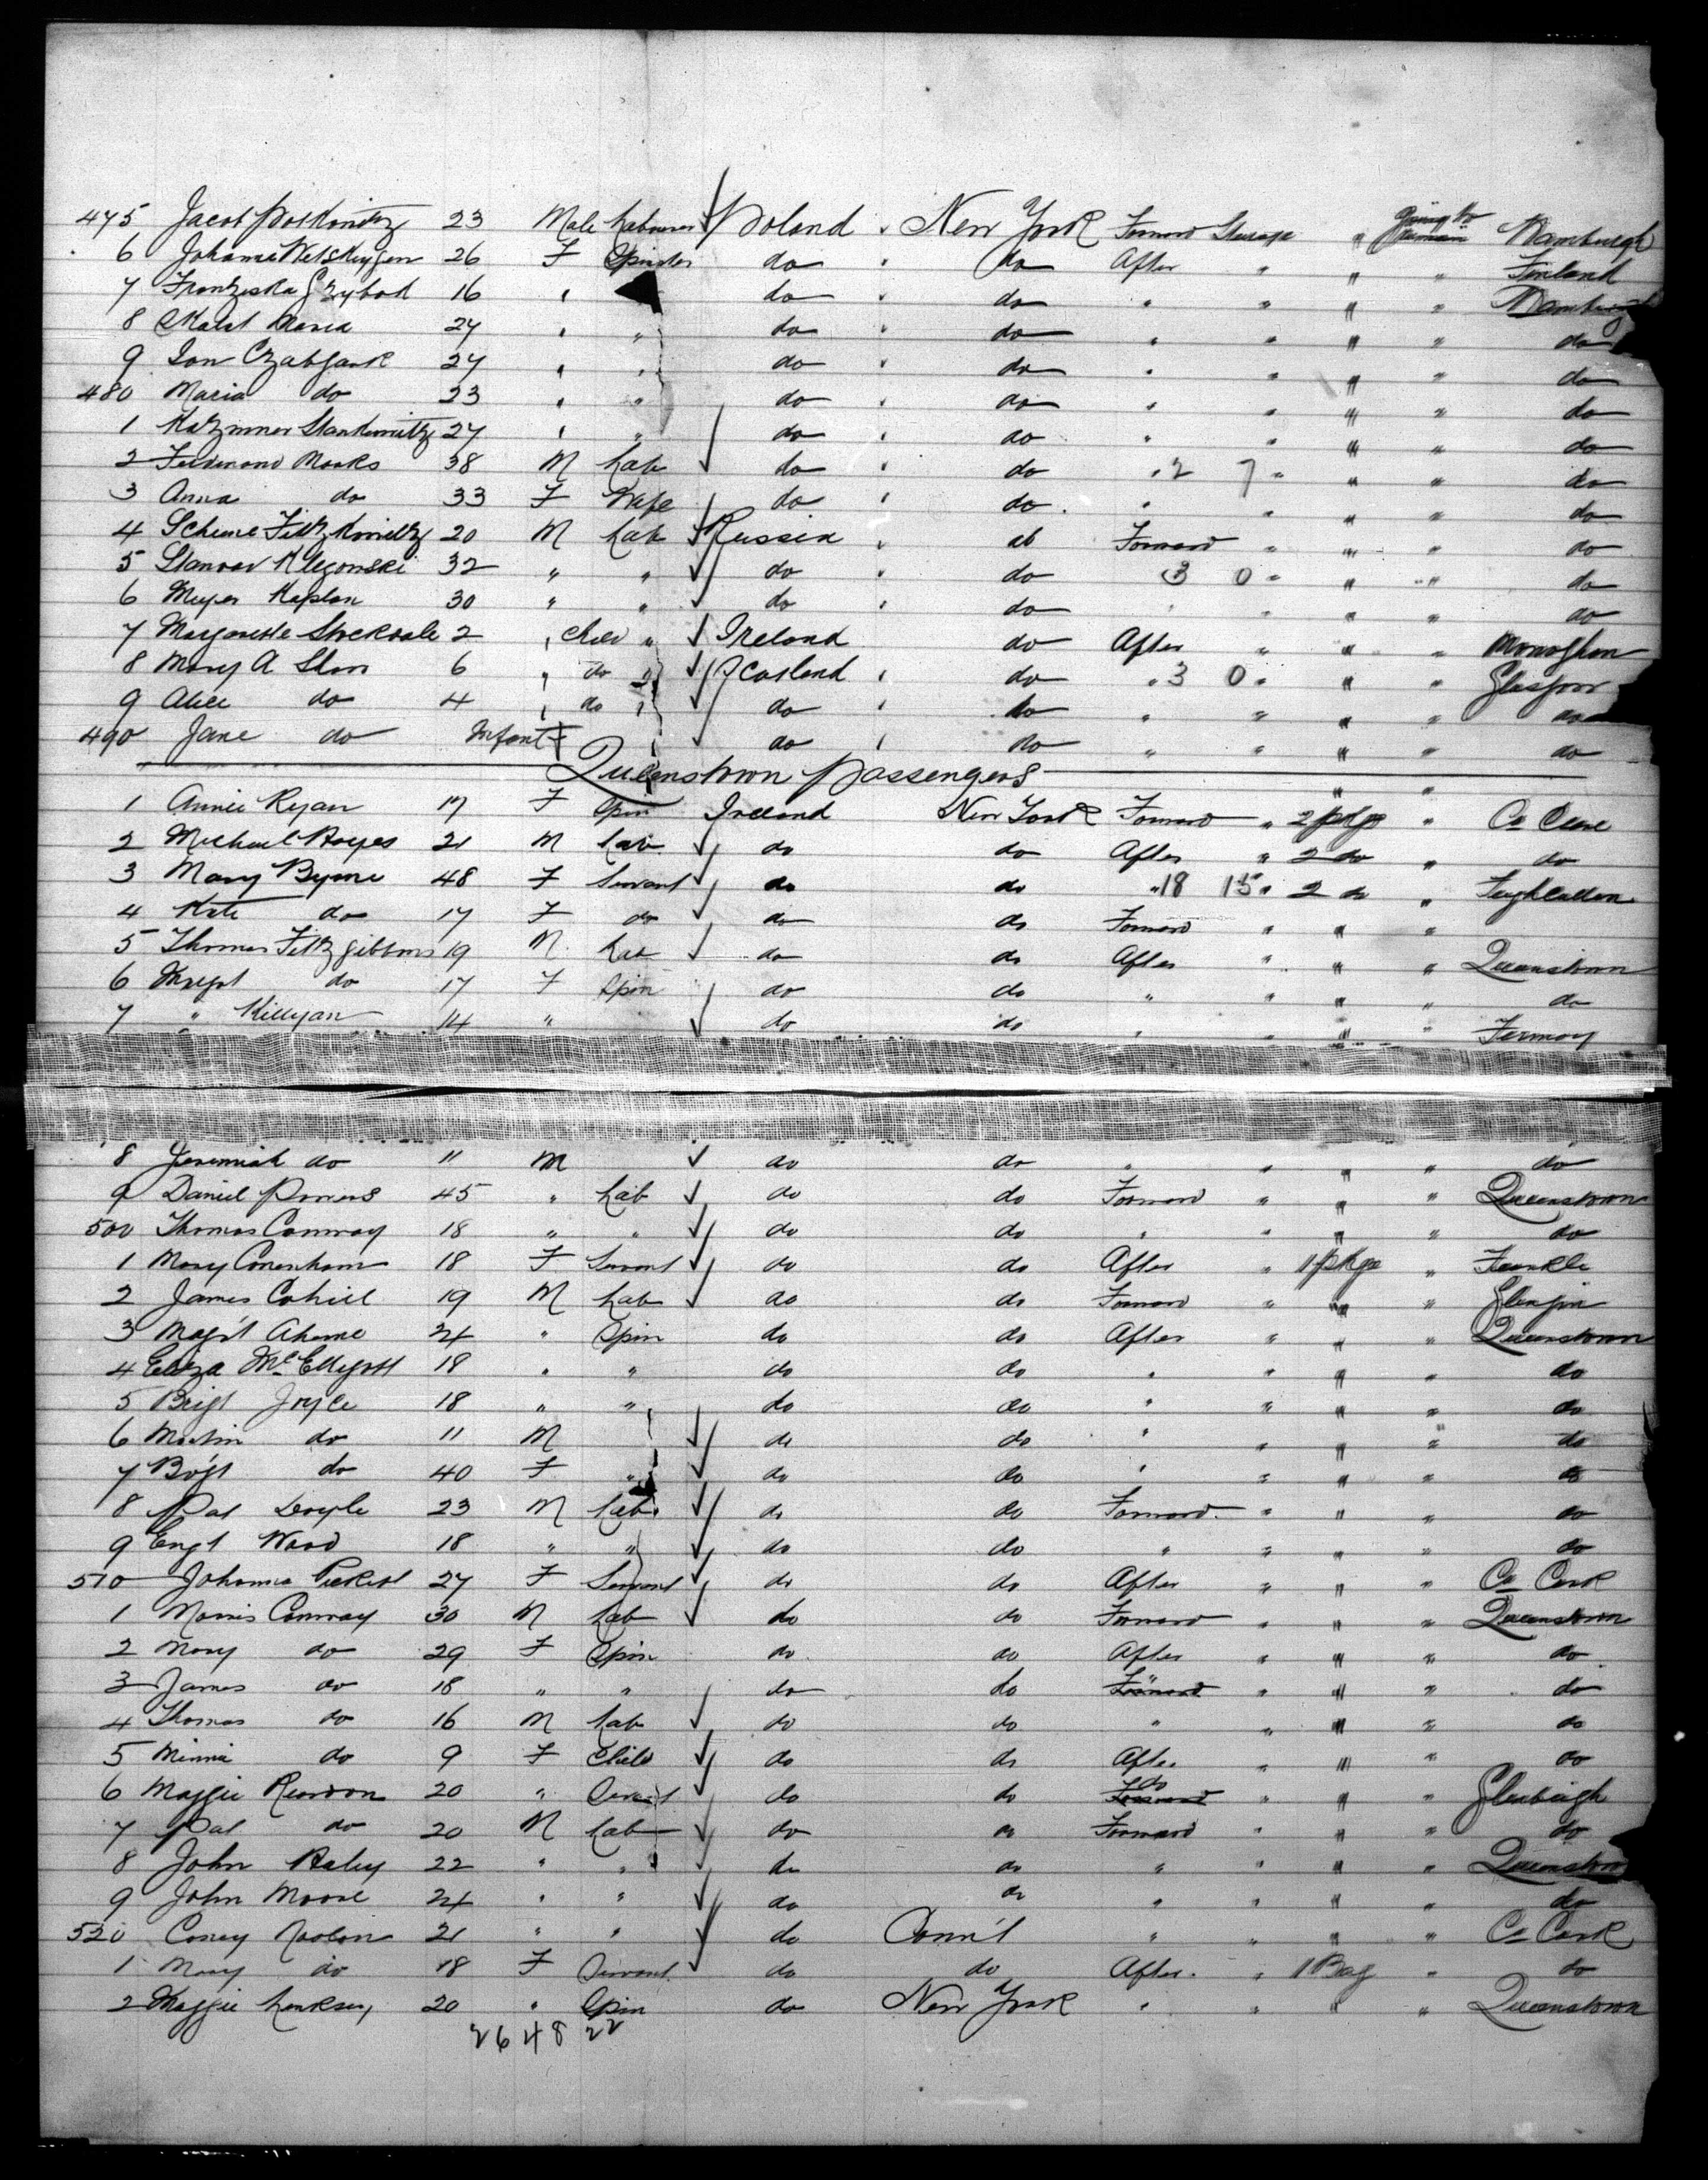 475 Jacob Poskonitz 23 Male Labourer Poland " New York Forward Steerage " Hamburgh
6 Johanna 26 F Spinster do " do After " " " Finland
7 Franziska Grzybok 16 " do " do " " " " Hamburgh
8 Skalst Maria 24 " " do " do " " " " do
9 Jon Czabjank 27 " " do " do " " " " do
480 Maria do 23 " " do " do " " " " do
1 Katzimer Stankewitz 27 " " do " do " " " " do
2 Ferdinand Mooks 38 M Lab do " do " 2 7 " " " do
3 Anna do 33 F Wife do " do " " " " do
4 Scheme Fittzkowitz 20 M Lab Russia " do Forward " " " do
5 Klegowski 32 " " do " do 3 0 " " " do
6 Meyer Kaplan 30 " " do " do " " " " do
7 Margarette Stockdale 2 " Child " Ireland do After " " " Monaghan
8 Mary A Starr 6 " do " Scotland " do " 3 0 " " " Glasgow
9 Alice do 4 " do " do " do " " " " do
490 Jane do Infant F do " do " " " " do
Queenstown Passengers
1 Annie Ryan 17 F Spin Ireland New York Forward " 2 pkgs " Co Clare
2 Michael Hayes 21 M Lab do do After " 2 do " do
3 Mary Byrne 48 F Servant do do " 18 15 " 2 do "
4 Kate do 17 F do do do Forward " " "
5 Thomas Fittzgibbons 19 M Lab do do After " " " Queenstown
6 Margt do 17 F Spin do do " " " " do
7 " Killyan 14 " do do " " " " Fermoy
8 Jeremiah do 11 M do do " " " " do
9 Daniel Powers 45 " Lab do do Forward " " " Queenstown
500 Thomas Conway 18 " " do do " " " " do
1 Mary Conenham 18 F Servant do do After " 1 pkge "
2 James Cahill 19 M Lab do do Forward " " "
3 Magt Aherne 24 " Spin do do After " " " Queenstown
4 Eliza McElligott 18 " " do do " " " " do
5 Brigt Joyce 18 " " do do " " " " do
6 Martin do 11 M do do " " " " do
7 Bgt do 40 F " do do " " " " do
8 Pat Doyle 23 M Lab do do Forward " " " do
9 Engt Wood 18 " " do do " " " " do
510 Johanna 27 F Servant do do After " " " Co Cork
1 Morris Conway 30 M Lab do do Forward " " " Queenstown
2 Mary do 29 F Spin do do After " " " do
3 James do 18 " " do do Forward " " " do
4 Thomas do 16 M Lab do do " " " " do
5 Minnie do 9 F Child do do After " " " do
6 Maggie Reardon 20 " Servant do do Forward do " " " Glenbeigh
7 Pat do 20 M Lab do do Forward " " " do
8 John Haley 22 " " do do " " " " Queenstown
9 John Moore 24 " " do do " " " " do
520 Coney Noolan 21 " " do Conn't " " " " Co Cork
1 Mary do 18 F Servant do do After " 1 Bag " do
2 Maggie 20 " Spin do New York " " " " Queenstown
26 48 22